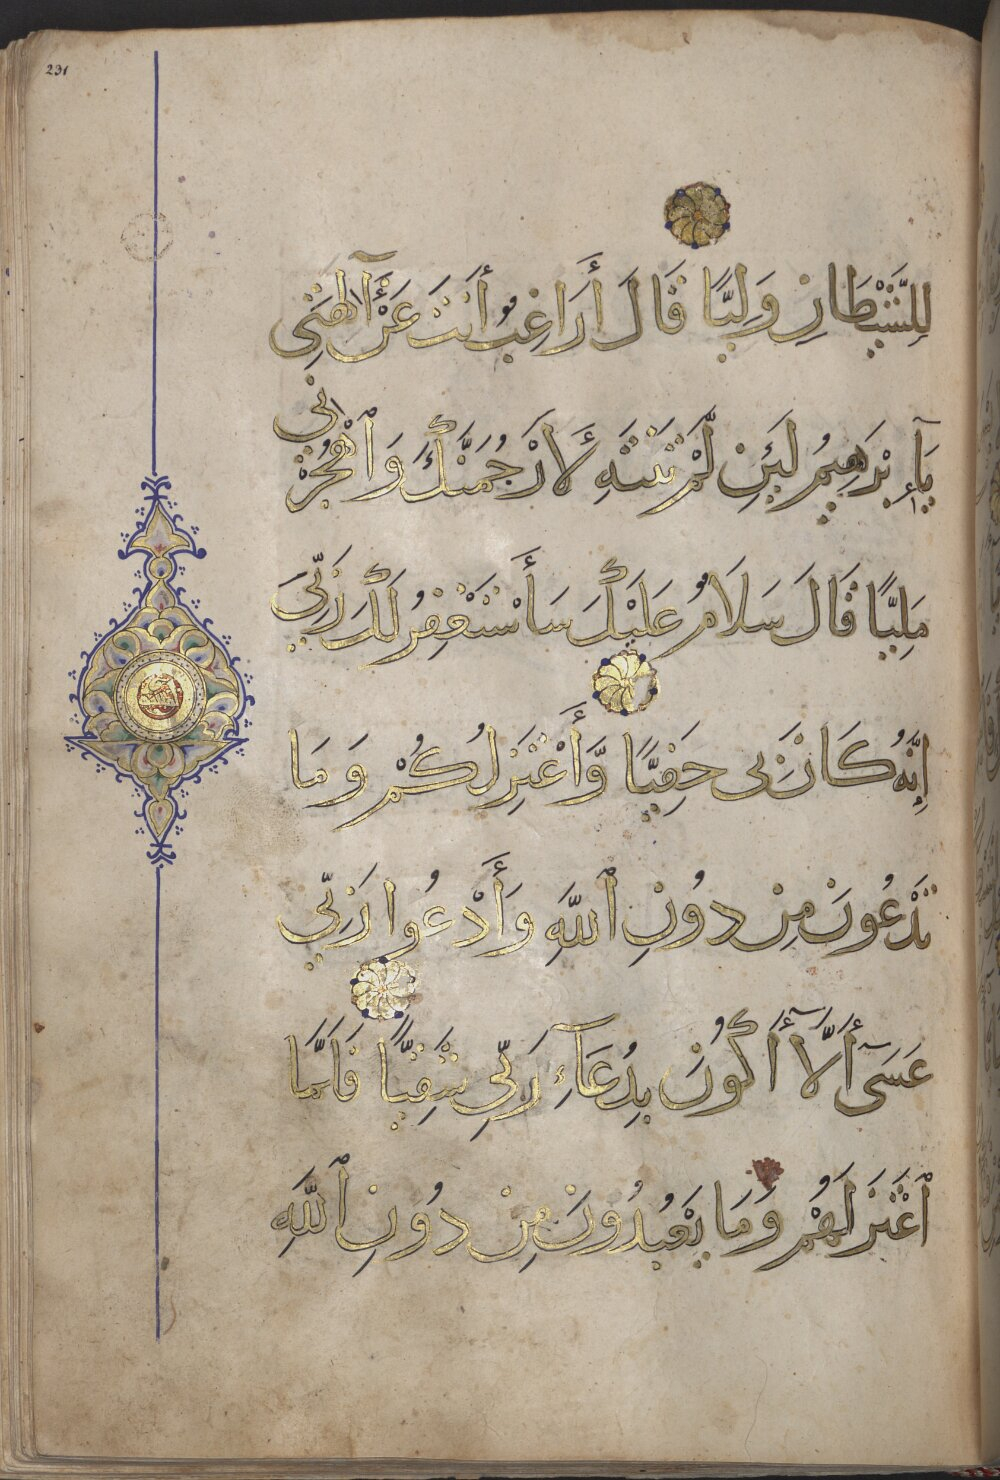 231
لِلشَّيْطَانِ وَلِيًّا قَالَ أَرَاغِبٌ أَنتَ عَنْ آلِهَتِى
يَآإِبْرَهِيمُ لَئِن لَّمْ تَنتَهِ لَأَرْجُمَنَّكَ وَٱهْجُرْنِى
مَلِيًّا قَالَ سَلَامٌ عَلَيْكَ سَأَسْتَغْفِرُ لَكَ رَبِّيَ
إِنَّهُ كَانَ بِى حَفِيًّا وَّأَعْتَزِلُكُمْ وَمَا
تَدْعُونَ مِن دُونِ ٱللَّهِ وَأَدْعُوا رَبِّي
عَسَىٓ أَلَّآ أَكُونَ بِدُعَآءِ رَبِّي شَقِيًّا فَلَمَّا
ٱعْتَزَلَهُمْ وَمَا يَعْبُدُونَ مِن دُونِ ٱللَّهِ